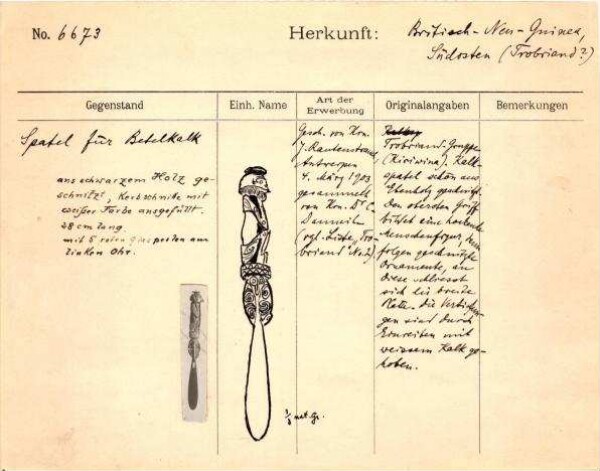 No. 6673
Herkunft:
Britisch-Neu-Guinea,
Südosten (Trobriand?)
Gegenstand
Einh. Name
Art der
Erwerbung
Originalangaben
Bemerkungen
Spatel für Betelkalk
aus schwarzem Holz ge-
schnitzt, Kerbschnitte mit
weißer Farbe ausgefüllt.
28 cm lang.
mit 5 roten Glasperlen am
linken Ohr.
Gesch. von Kon.
J. Rautenstrauch,
Antwerpen
4. März 1903
gesammelt
von Hrn. Dr. C.
(vgl. Liste „Tro-
briand" No. 2).
Trobriand-Gruppe
(Kiriwina). Kalk-
spatel schön aus
Ebenholz geschnitzt.
Den obersten Griff
bildet eine hockende
Menschenfigur, dann
folgen geschnitzte
Ornamente, an
diese schliesst
sich die breite
die Vertiefun-
gen sind durch
Einreiben mit
weissem Kalk ge-
hoben.
1/3 nat. Gr.